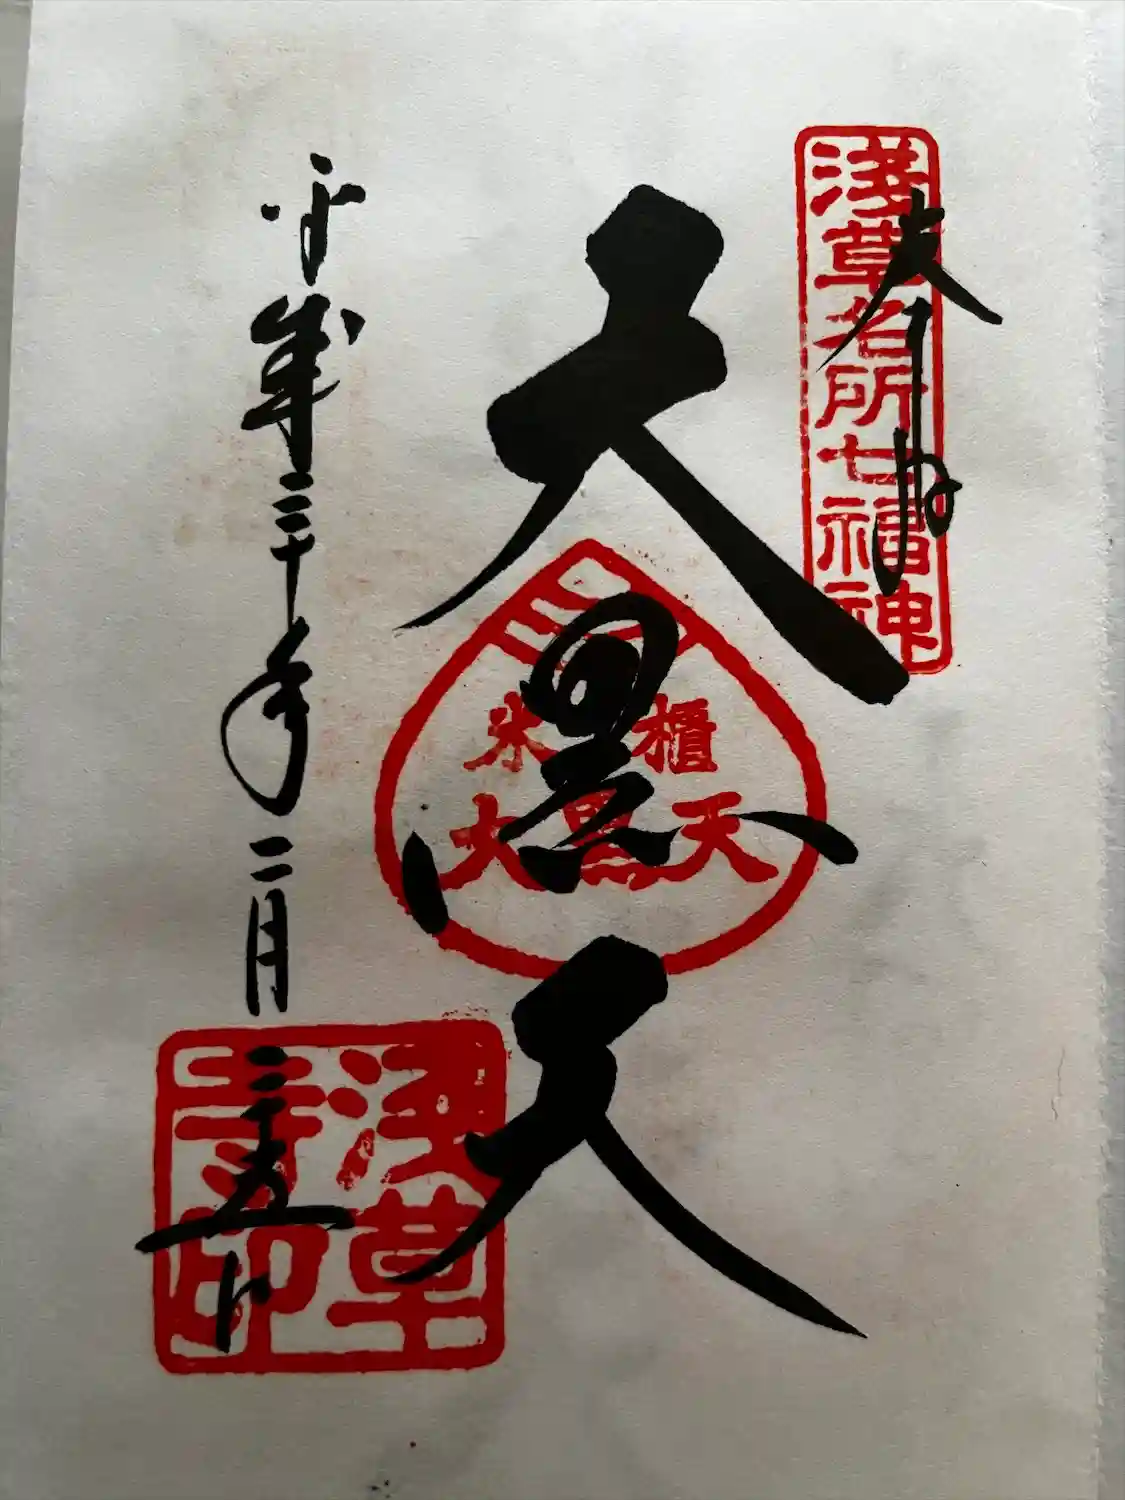 奉拝
浅草名所七福神
大黒天
米櫃
大黒天
平成三十年二月二十五日
浅草
寺印